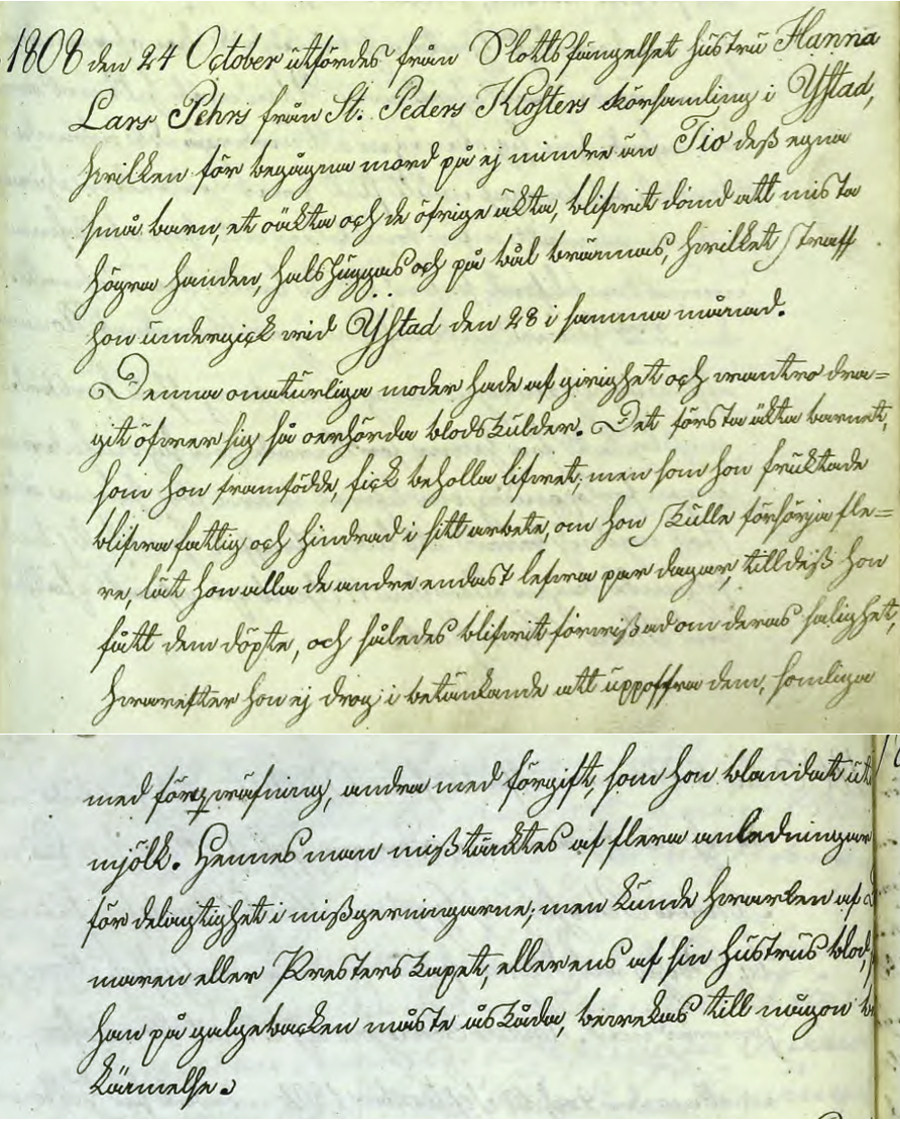 1808 den 24 October utfördes från Slottsfängelset hustru Hanna
Lars Pehrs från St. Peders Klosters församling i Ystad,
hvilken för begågna mord på ej mindre än Tio deß egna
små barn, et oäkta och de öfrige äkta, blifvit dömd att mista
högra handen, halshuggas och på bål brännas, hvilket straff
hon undergick vid Ystad den 28 i samma månad.
Denna onaturliga moder hade af girighet och vantro dra=
git öfwer sig så oerhörda blodskulder. Det första äkta barnet,
som hon framfödde, fick beholla lifvet; men som hon fruktade
blifva fattig och hindrad i sitt arbete, om hon skulle försörja fle=
re, lät hon alla de andre endast lefva par dagar, tilldeß hon
fått dem döpte, och således blifvit förvißad om deras salighet,
hvarefter hon ej drog i betänkande att uppoffra dem, somliga
med förqväfning, andra med förgift, som hon blandat uti
mjölk. Hennes man mißtäcktes af flera anledningar
för delagtighet i mißgerningarne; men kunde hvarken af
maren eller Presterskapet, eller ens af sin hustrus blod,
han på galgebacken måste åskåda, bevekas till någon
kännelse.